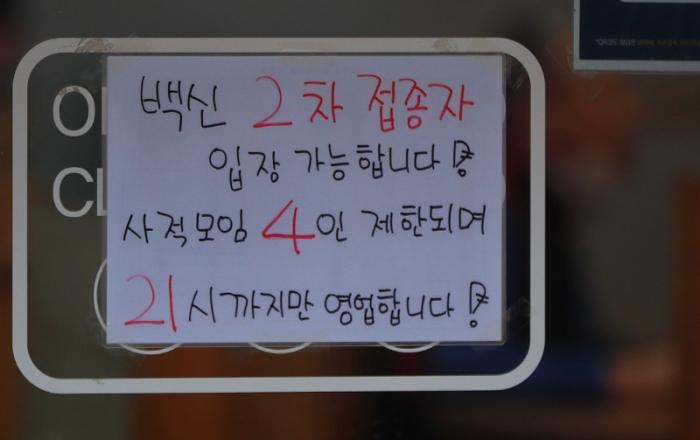 백신 2차 접종자
입장 가능합니다!
사적모임 4인 제한되며
21시까지만 영업합니다!
O
CL